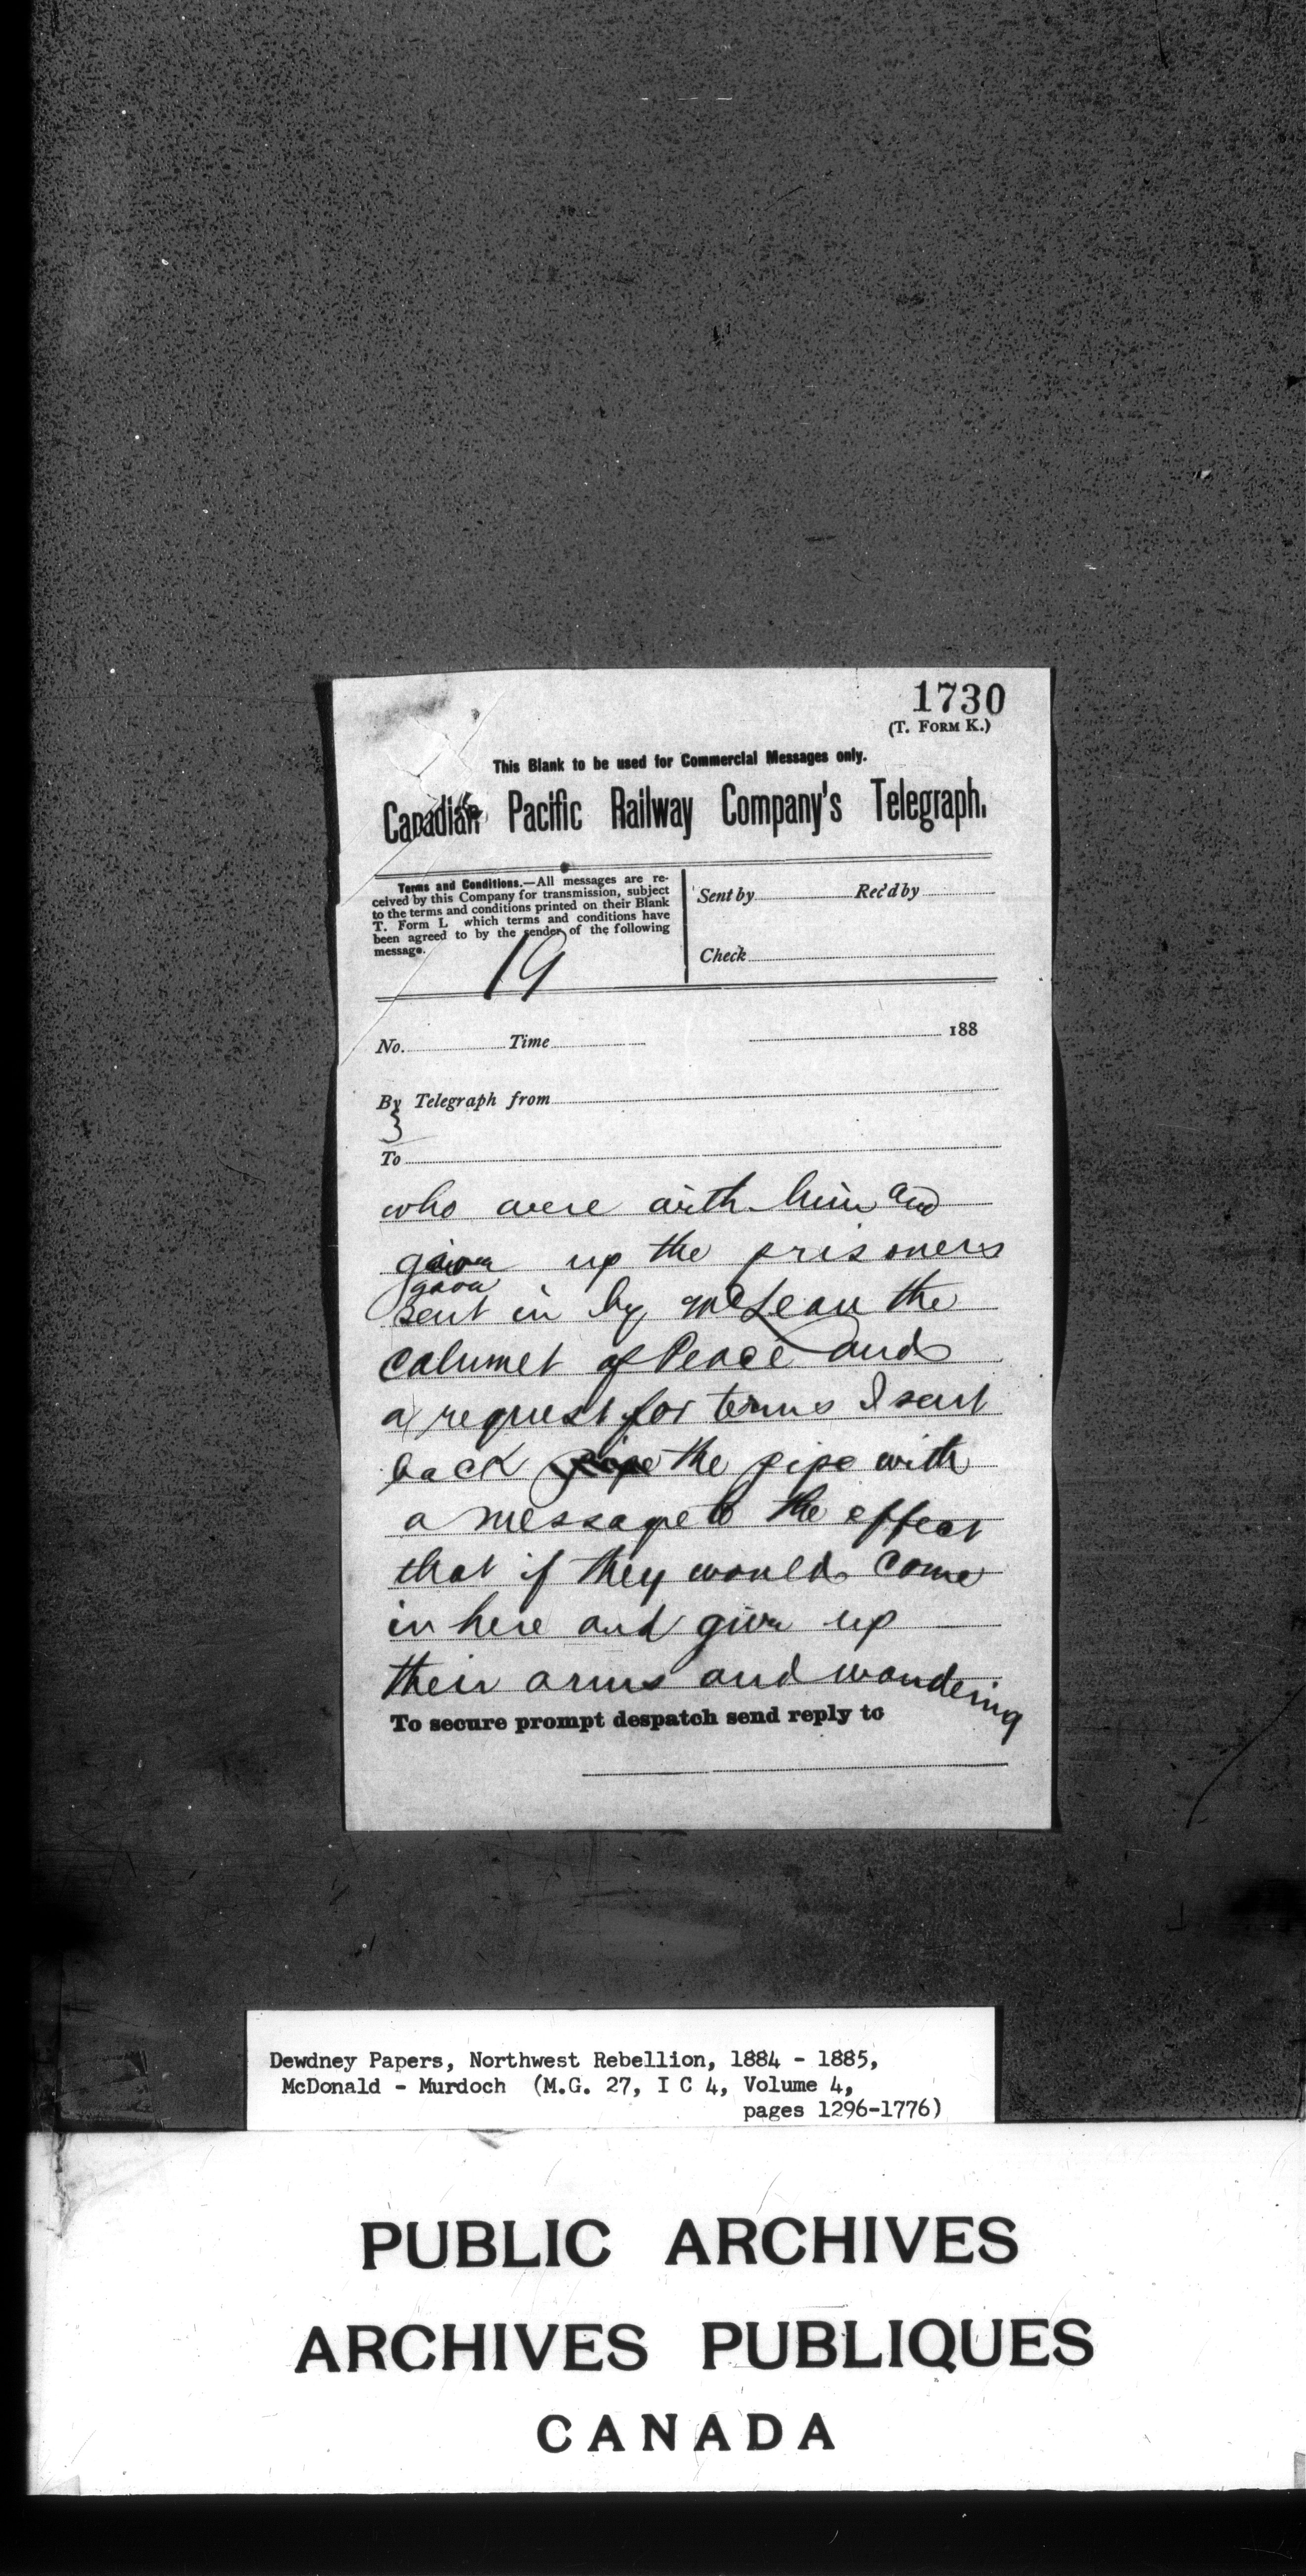 1730
(T. FORM K.)
This Blank to be used for Commercial Messages only.
Canadian Pacific Railway Company's Telegraph.
Terms and Conditions.—All messages are re-
ceived by this Company for transmission, subject
to the terms and conditions printed on their Blank
T. Form L which terms and conditions have
been agreed to by the sender of the following
message.
Sent by Rec'd by
Check
19
No. Time 188
By Telegraph from
3
To
who were with him and
up the prisoners
gave
sent in by McLean the
calumet of Peace and
a request for terms I sent
back pipe the pipe with
a message to the effect
that if they would come
in here and give up
their arms and wandering
To secure prompt despatch send reply to
Dewdney Papers, Northwest Rebellion, 1884 - 1885,
McDonald - Murdoch (M.G. 27, I C 4, Volume 4,
pages 1296-1776)
PUBLIC ARCHIVES
ARCHIVES PUBLIQUES
CANADA